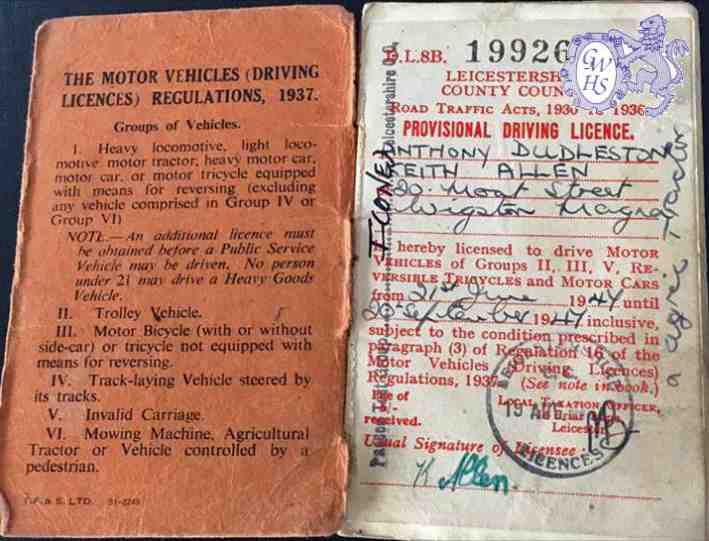 THE MOTOR VEHICLES (DRIVING
LICENCES) REGULATIONS, 1937.
Groups of Vehicles.
I. Heavy locomotive, light loco-
motive motor tractor, heavy motor car,
motor car, or motor tricycle equipped
with means for reversing (excluding
any vehicle comprised in Group IV or
Group VI)
NOTE.—An additional licence must
be obtained before a Public Service
Vehicle may be driven. No person
under 21 may drive a Heavy Goods
Vehicle.
II. Trolley Vehicle.
III. Motor Bicycle (with or without
side-car) or tricycle not equipped with
means for reversing.
IV. Track-laying Vehicle steered by
its tracks.
V. Invalid Carriage.
VI. Mowing Machine, Agricultural
Tractor or Vehicle controlled by a
pedestrian.
& S. LTD.
D.L.8B. 19926
GWHS
LEICESTERSH
COUNTY COUN
ROAD TRAFFIC ACTS, 1930 1936
PROVISIONAL DRIVING LICENCE.
ANTHONY DUDLESTON
KEITH ALLEN
20. Moat Street
Wigston Magna
hereby licensed to drive MOTOR
VEHICLES of Groups II, III, V. RE-
VERSIBLE TRICYCLES and MOTOR CARS
from 21st June 1947 until
20 September 1947 inclusive,
subject to the condition prescribed in
paragraph (3) of Regulation 16 of the
Motor Vehicles (Driving Licences)
Regulations, 1937. (See note in book.)
Fee of
received.
LOCAL TAXATION OFFICER,
Friar
Leicester
19 
LICENCES
Usual Signature of Licensee
K Allen.
Leicestershire